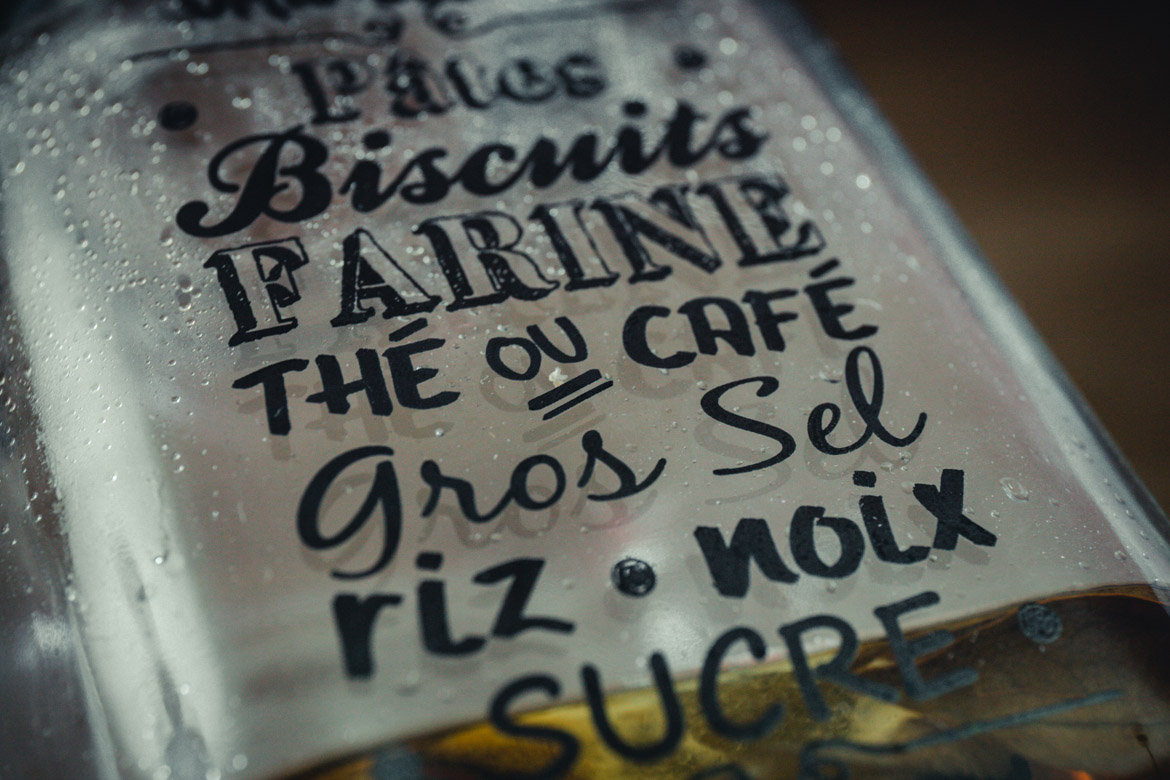 Pâtes
Biscuits
FARINE
THÉ OU CAFÉ
Gros Sel
riz • noix
SUCRE